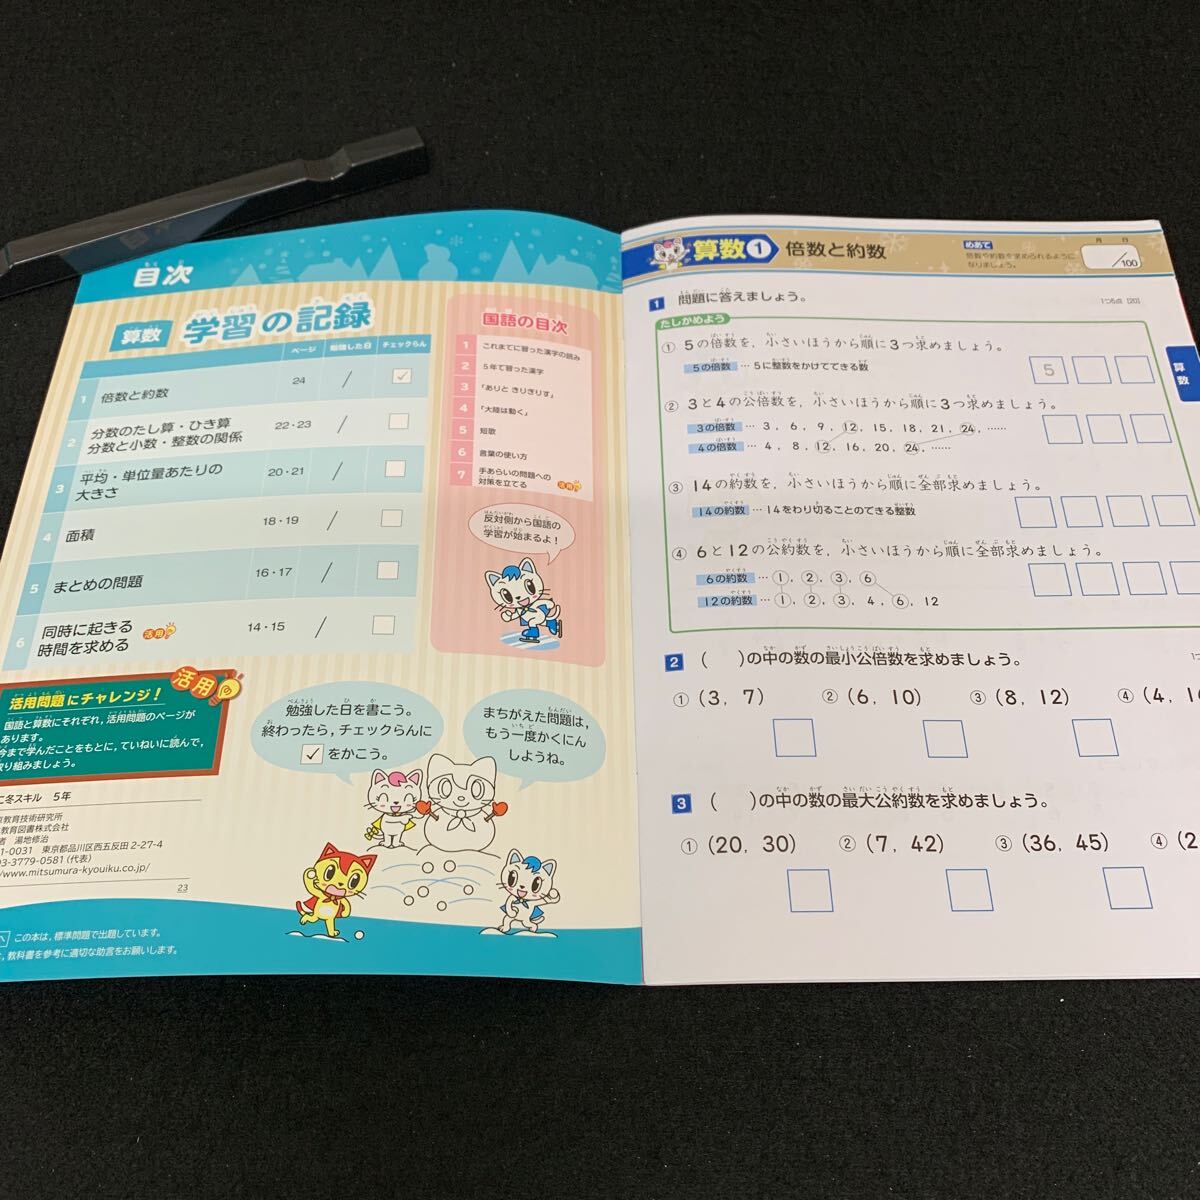 目次
算数 学習の記録
ページ 勉強した日 チェックらん
1 倍数と約数 24 /
2 分数のたし算・ひき算
分数と小数・整数の関係 22・23 /
3 平均・単位量あたりの
大きさ 20・21 /
4 面積 18・19 /
5 まとめの問題 16・17 /
6 同時に起きる
時間を求める 活用 14・15 /
国語の目次
1 これまでに習った漢字の読み
2 5年で習った漢字
3 「ありと きりぎりす」
4 「大陸は動く」
5 短歌
6 言葉の使い方
7 手あらいの問題への
対策を立てる 活用
反対側から国語の
学習が始まるよ!
活用問題にチャレンジ! 活用
国語と算数にそれぞれ,活用問題のページが
あります。
今まで学んだことをもとに,ていねいに読んで,
取り組みましょう。
勉強した日を書こう。
終わったら,チェックらんに
✓をかこう。
まちがえた問題は,
もう一度かくにん
しようね。
冬スキル 5年
教育技術研究所
教育図書株式会社
者 湯地修治
1-0031 東京都品川区西五反田 2-27-4
03-3779-0581 (代表)
www.mitsumura-kyouiku.co.jp/
23
この本は,標準問題で出題しています。
教科書を参考に適切な助言をお願いします。
算数 1 倍数と約数
めあて
倍数や約数を求められるように
なりましょう。
月 日
/100
算数
1 問題に答えましょう。 1つ5点【20】
たしかめよう
① 5の倍数を,小さいほうから順に3つ求めましょう。
5の倍数 … 5に整数をかけてできる数
5
② 3と4の公倍数を,小さいほうから順に3つ求めましょう。
3の倍数 … 3, 6, 9, 12, 15, 18, 21, 24, ……
4の倍数 … 4, 8, 12, 16, 20, 24, ……
③ 14の約数を,小さいほうから順に全部求めましょう。
14の約数 … 14をわり切ることのできる整数
④ 6と12の公約数を,小さいほうから順に全部求めましょう。
6の約数 … 1, 2, 3, 6
12の約数 … 1, 2, 3, 4, 6, 12
2 ( )の中の数の最小公倍数を求めましょう。
① (3, 7) ② (6, 10) ③ (8, 12) ④ (4, 16
3 ( )の中の数の最大公約数を求めましょう。
① (20, 30) ② (7, 42) ③ (36, 45) ④ (2